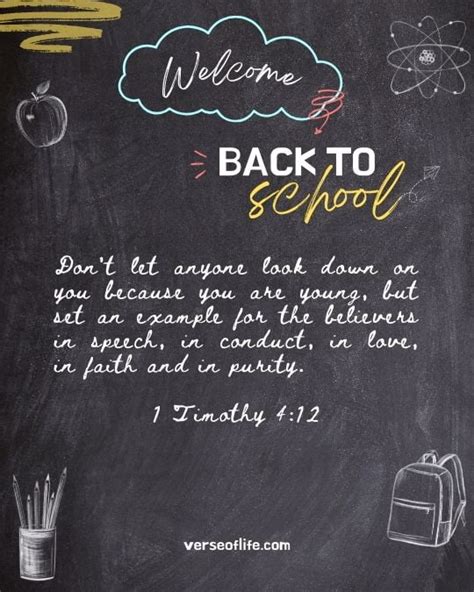 Welcome
BACK TO
school
Don't let anyone look down on
you because you are young, but
set an example for the believers
in speech, in conduct, in love,
in faith and in purity.
1 Timothy 4:12
verseoflife.com